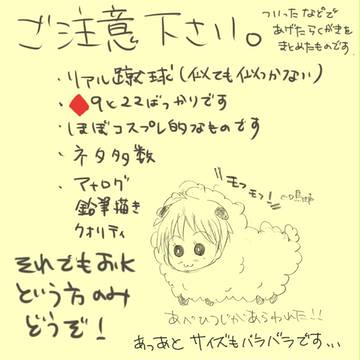 ご注意下さい。
ついったなどで
あげたらくがきを
まとめたものです。
・リアル蹴球(似ても似つかない)
・♦9と22ばっかりです
・ほぼコスプレ的なものです
・ネタ多数
・アナログ
鉛筆描き
クオリティ
モフモフ!
それでもOK
という方のみ
どうぞ!
あべひつじがあらわれた!!
あっあと サイズもバラバラです、、、